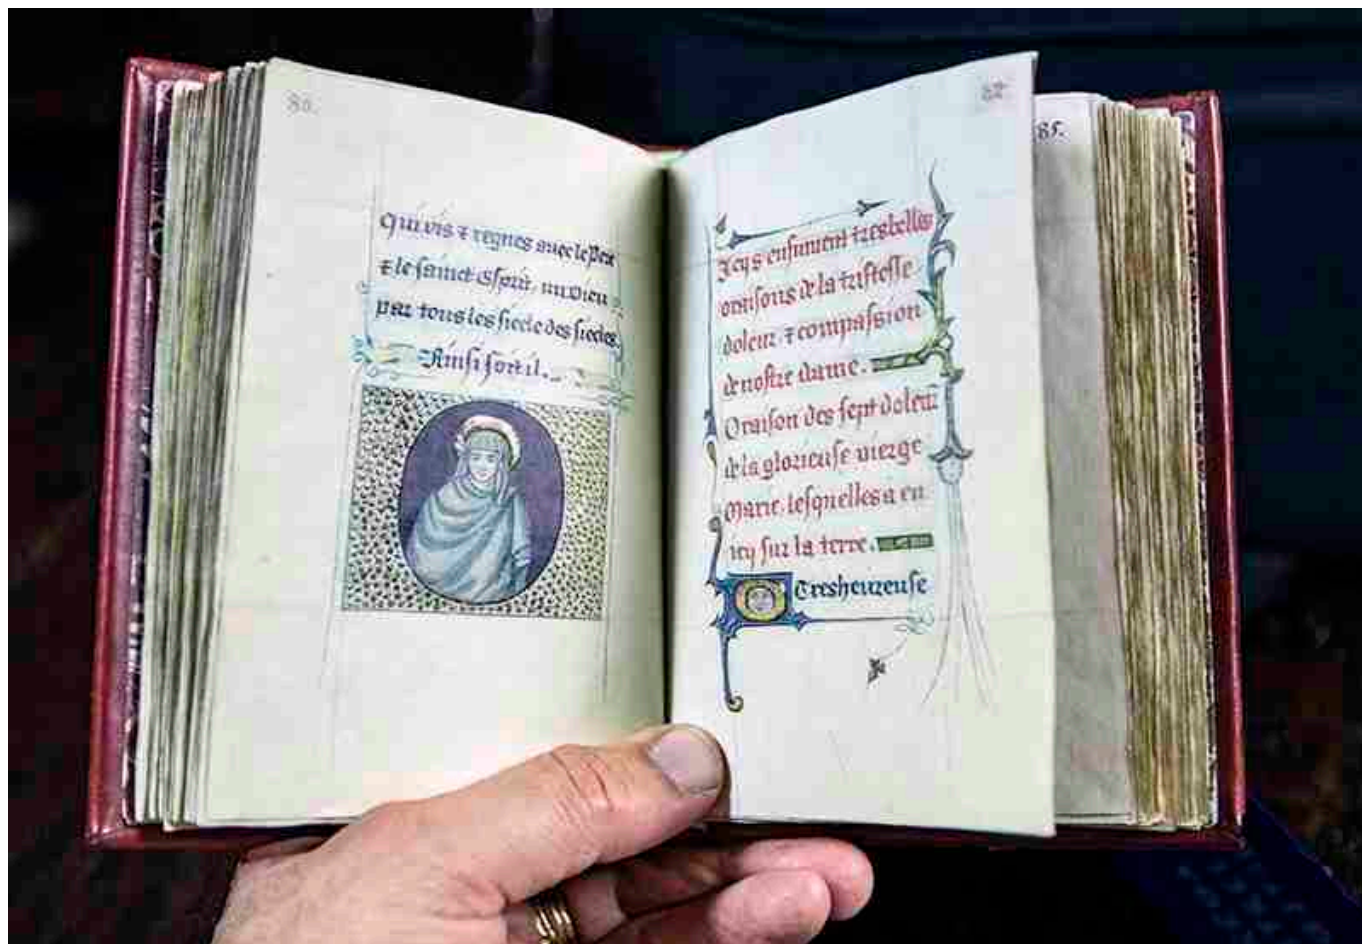 qui vis & regnes auec le Pere
& le sainct Esprit, un Dieu
par tous les siecle des siecles.
Ainsi soit il.
Icy s'ensuiuent tresbelles
oraisons de la tristesse
doleur & compassion
de nostre dame.
Oraison des sept doleur
de la glorieuse vierge
Marie, lesquelles a eu
icy sur la terre.
O Tresheureuse
85.